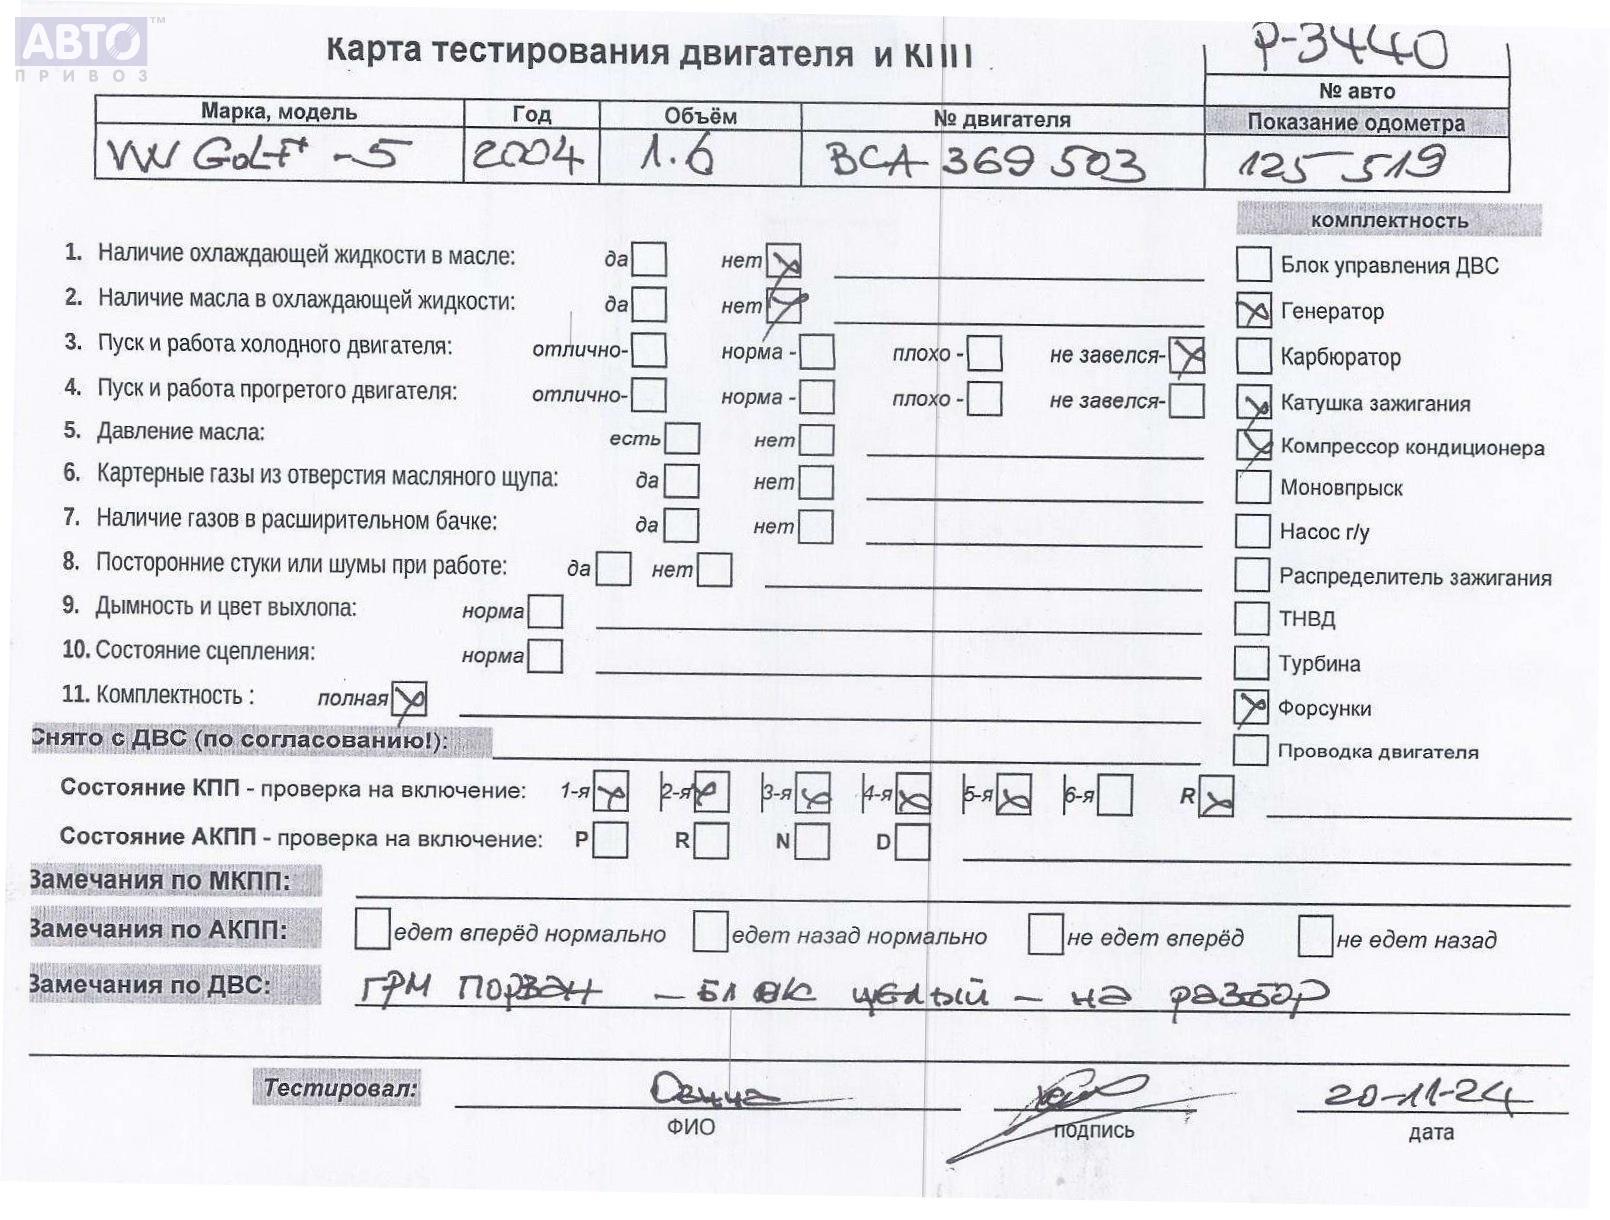 АВТО™
ПРИВОЗ
Карта тестирования двигателя и КПП
Р-3440
№ авто
Марка, модель Год Объём № двигателя Показание одометра
VW GOLF-5 2004 1.6 BCA 369 503 125 519
комплектность
1. Наличие охлаждающей жидкости в масле: да нет
2. Наличие масла в охлаждающей жидкости: да нет
3. Пуск и работа холодного двигателя: отлично- норма - плохо - не завелся-
4. Пуск и работа прогретого двигателя: отлично- норма - плохо - не завелся-
5. Давление масла: есть нет
6. Картерные газы из отверстия масляного щупа: да нет
7. Наличие газов в расширительном бачке: да нет
8. Посторонние стуки или шумы при работе: да нет
9. Дымность и цвет выхлопа: норма
10. Состояние сцепления: норма
11. Комплектность : полная
Блок управления ДВС
Генератор
Карбюратор
Катушка зажигания
Компрессор кондиционера
Моновпрыск
Насос г/у
Распределитель зажигания
ТНВД
Турбина
Форсунки
Проводка двигателя
Снято с ДВС (по согласованию!):
Состояние КПП - проверка на включение: 1-я 2-я 3-я 4-я 5-я 6-я R
Состояние АКПП - проверка на включение: P R N D
Замечания по МКПП:
Замечания по АКПП: едет вперёд нормально едет назад нормально не едет вперёд не едет назад
Замечания по ДВС: ГРМ ПОРВАН - БЛОК ЦЕЛЫЙ - НА РАЗБОР
Тестировал: 20-11-24
ФИО подпись дата